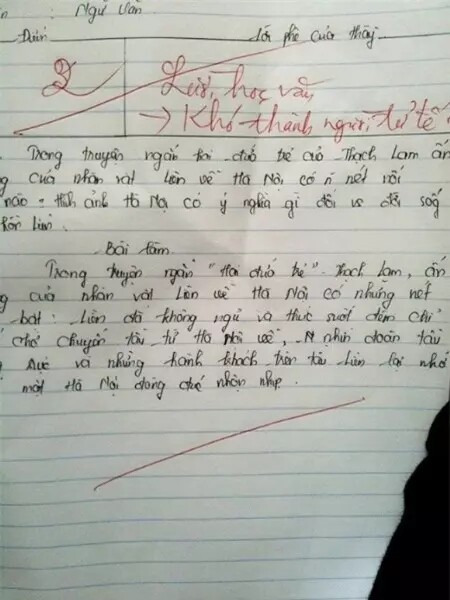 n : Ngữ Văn
Điểm Lời phê của thầy
2 Lười học văn
→ Khó thành người tử tế
Trong truyện ngắn hai đứa trẻ của Thạch Lam ấn
g của nhân vật Liên về Hà Nội có n nét nổi
nào - Hình ảnh Hà Nội có ý nghĩa gì đối vs đời sống
Liên.
Bài làm
Trong truyện ngắn "Hai đứa trẻ" Thạch Lam, ấn
g của nhân vật Liên về Hà Nội có những nét
bật: Liên đã không ngủ và thức suốt đêm chỉ
chờ chuyến tàu từ Hà Nội về, nhìn đoàn tàu
rực và những hành khách trên tàu Liên lại nhớ
một Hà Nội đông nhộn nhịp.